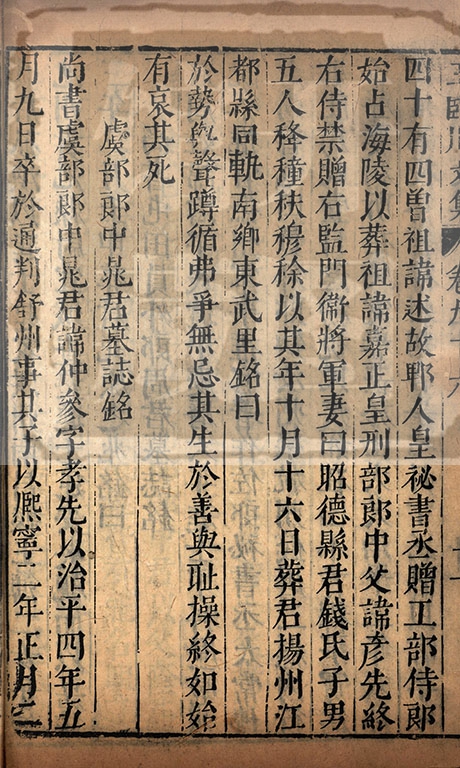 王臨川文集 卷九十六
四十有四曾祖諱述故鄆人皇祕書丞贈工部侍郎
始占海陵以葬祖諱嘉正皇刑部郎中父諱彦先終
右侍禁贈右監門衞將軍妻曰昭德縣君錢氏子男
五人稃種秩穆稌以其年十月十六日葬君揚州江
都縣同軌南鄉東武里銘曰
於勢與聲蹲循弗爭無忌其生於善與耻操終如始
有哀其死
虞部郎中晁君墓誌銘
尚書虞部郎中晁君諱仲參字孝先以治平四年五
月九日卒於通判舒州事其子以熈寧二年正月二